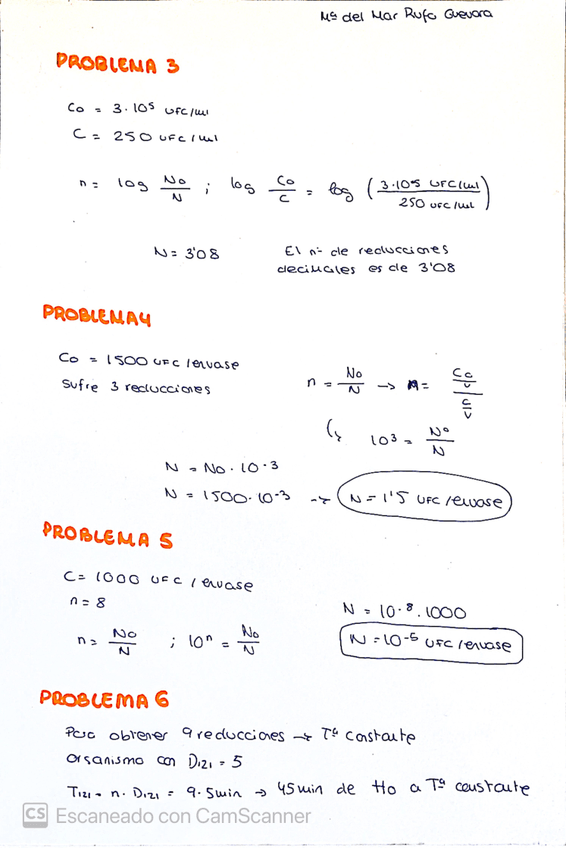 Mª del Mar Rufo Guevara
PROBLEMA 3
Co = 3·10⁵ UFC/ml
C = 250 UFC/ml
n = log No/N ; log Co/C = log (3·10⁵ UFC/ml / 250 UFC/ml)
N = 3'08 El nº de reducciones
decimales es de 3'08
PROBLEMA 4
Co = 1500 UFC/envase
Sufre 3 reducciones
n = No/N → n = Co/v / C/v
↳ 10³ = No/N
N = No · 10⁻³
N = 1500 · 10⁻³ → N = 1'5 UFC/envase
PROBLEMA 5
C = 1000 UFC/envase
n = 8
N = 10⁻⁸ · 1000
n = No/N ; 10ⁿ = No/N
N = 10⁻⁵ UFC/envase
PROBLEMA 6
Para obtener 9 reducciones → Tª constante
Organismo con D₁₂₁ = 5
T₁₂₁ = n · D₁₂₁ = 9 · 5min → 45min de tto a Tª constante
CS Escaneado con CamScanner